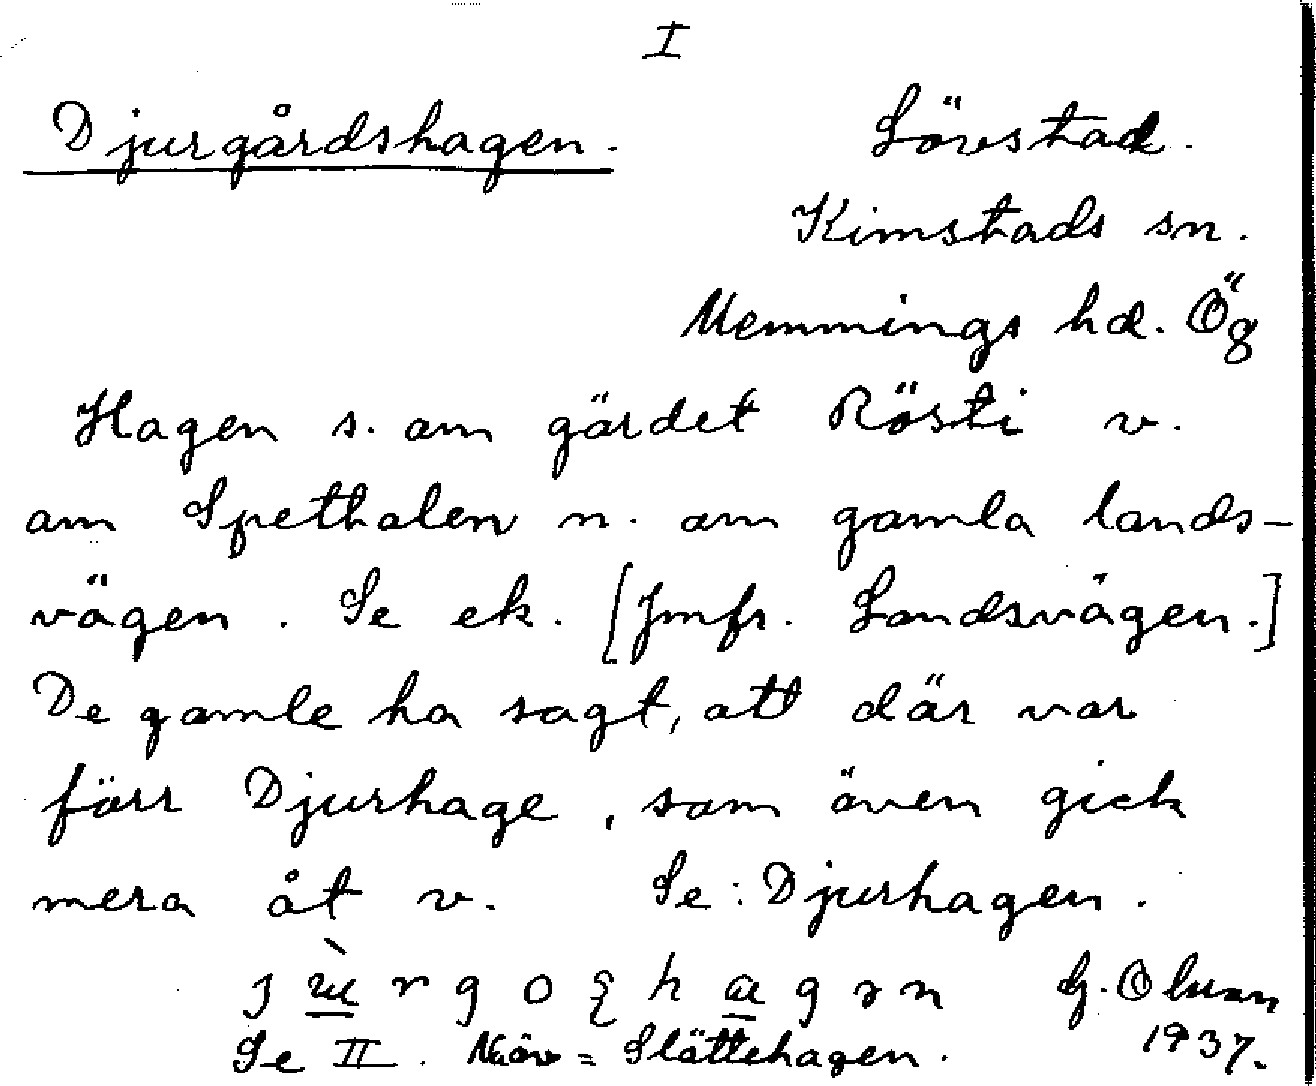 I
Djurgårdshagen. Lövstad.
Kimstads sn.
Memmings hd. Ög
Hagen s. om gärdet Rösti v.
om Spethalen n. om gamla lands-
vägen. Se ek. [Jmfr. Landsvägen.]
De gamle ha sagt, att där var
förr Djurhage, som även gick
mera åt v. Se: Djurhagen.
G. Olsson
Se II. = Slättehagen. 1937.